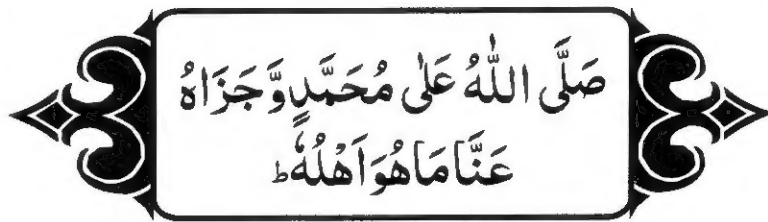 صَلَّی اللّٰهُ عَلٰی مُحَمَّدٍ وَّجَزَاهُ
عَنَّا مَا هُوَ اَهْلُهٗ ؕ